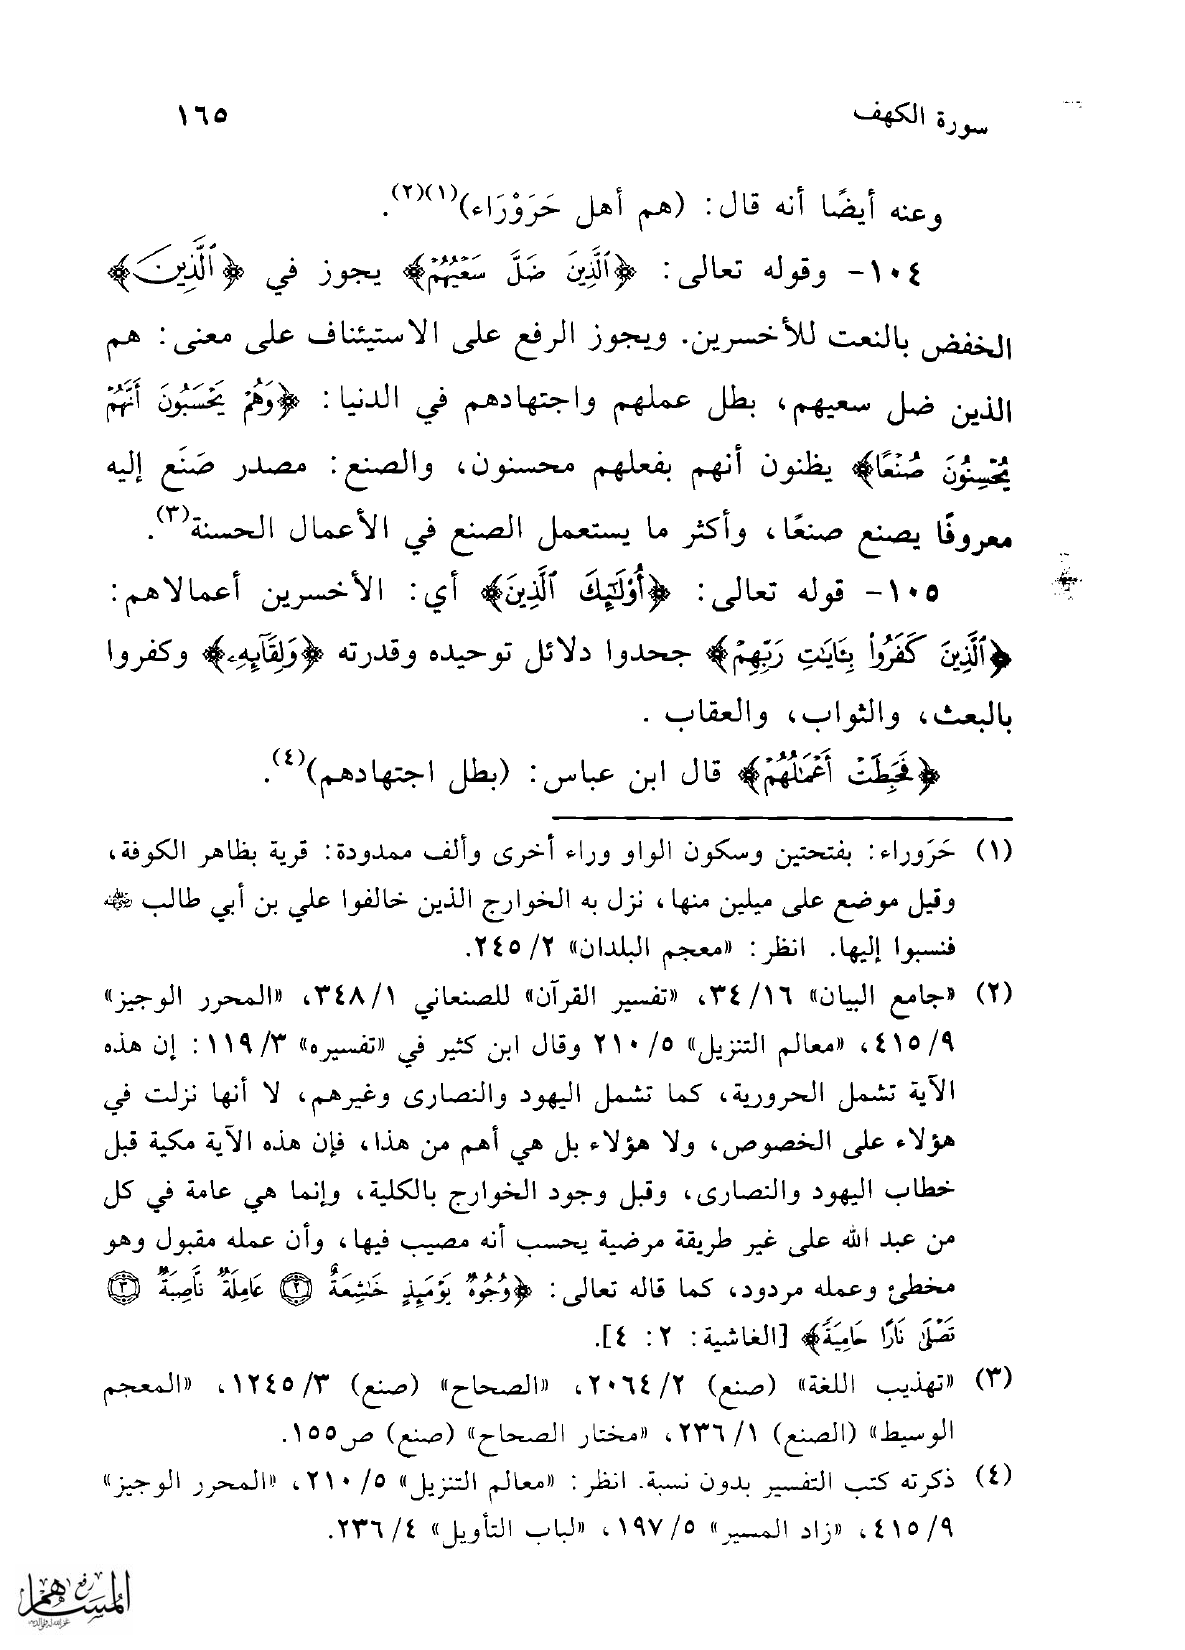 سورة الكهف ١٦٥
وعنه أيضًا أنه قال: (هم أهل حَرَوْرَاء)(١)(٢).
١٠٤- وقوله تعالى: ﴿ٱلَّذِينَ ضَلَّ سَعْيُهُمْ﴾ يجوز في ﴿ٱلَّذِينَ﴾
الخفض بالنعت للأخسرين. ويجوز الرفع على الاستيئناف على معنى: هم
الذين ضل سعيهم، بطل عملهم واجتهادهم في الدنيا: ﴿وَهُمْ يَحْسَبُونَ أَنَّهُمْ
يُحْسِنُونَ صُنْعًا﴾ يظنون أنهم بفعلهم محسنون، والصنع: مصدر صَنَع إليه
معروفًا يصنع صنعًا، وأكثر ما يستعمل الصنع في الأعمال الحسنة(٣).
١٠٥- قوله تعالى: ﴿أُوْلَٰٓئِكَ ٱلَّذِينَ﴾ أي: الأخسرين أعمالاهم:
﴿ٱلَّذِينَ كَفَرُواْ بِـَٔايَٰتِ رَبِّهِمْ﴾ جحدوا دلائل توحيده وقدرته ﴿وَلِقَآئِهِۦ﴾ وكفروا
بالبعث، والثواب، والعقاب .
﴿فَحَبِطَتْ أَعْمَٰلُهُمْ﴾ قال ابن عباس: (بطل اجتهادهم)(٤).
(١) حَرَوراء: بفتحتين وسكون الواو وراء أخرى وألف ممدودة: قرية بظاهر الكوفة،
وقيل موضع على ميلين منها، نزل به الخوارج الذين خالفوا علي بن أبي طالب ﵁
فنسبوا إليها. انظر: «معجم البلدان» ٢/ ٢٤٥.
(٢) «جامع البيان» ١٦/ ٣٤، «تفسير القرآن» للصنعاني ١/ ٣٤٨، «المحرر الوجيز»
٩/ ٤١٥، «معالم التنزيل» ٥/ ٢١٠ وقال ابن كثير في «تفسيره» ٣/ ١١٩: إن هذه
الآية تشمل الحرورية، كما تشمل اليهود والنصارى وغيرهم، لا أنها نزلت في
هؤلاء على الخصوص، ولا هؤلاء بل هي أهم من هذا، فإن هذه الآية مكية قبل
خطاب اليهود والنصارى، وقبل وجود الخوارج بالكلية، وإنما هي عامة في كل
من عبد الله على غير طريقة مرضية يحسب أنه مصيب فيها، وأن عمله مقبول وهو
مخطئ وعمله مردود، كما قاله تعالى: ﴿وُجُوهٌ يَوْمَئِذٍ خَٰشِعَةٌ ٢ عَامِلَةٌ نَّاصِبَةٌ ٣
تَصْلَىٰ نَارًا حَامِيَةً﴾ [الغاشية: ٢: ٤].
(٣) «تهذيب اللغة» (صنع) ٢/ ٢٠٦٤، «الصحاح» (صنع) ٣/ ١٢٤٥، «المعجم
الوسيط» (الصنع) ١/ ٢٣٦، «مختار الصحاح» (صنع) ص١٥٥.
(٤) ذكرته كتب التفسير بدون نسبة. انظر: «معالم التنزيل» ٥/ ٢١٠، «المحرر الوجيز»
٩/ ٤١٥، «زاد المسير» ٥/ ١٩٧، «لباب التأويل» ٤/ ٢٣٦.